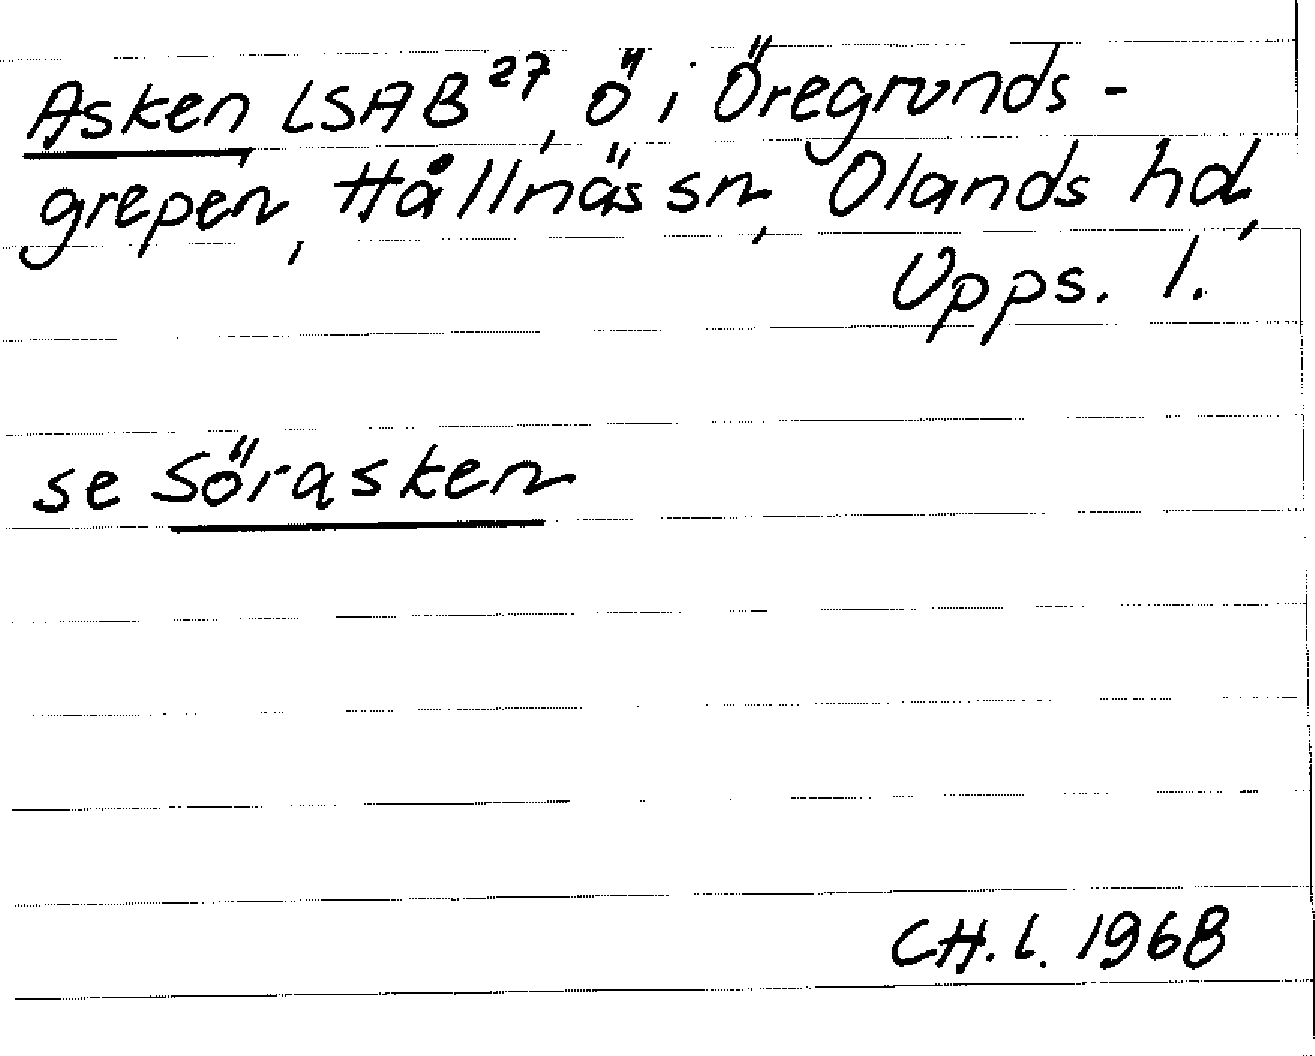 Asken LSAB 27, ö i Öregrunds-
grepen, Hållnäs sn, Olands hd,
Upps. l.
se Sörasken
CH. L. 1968